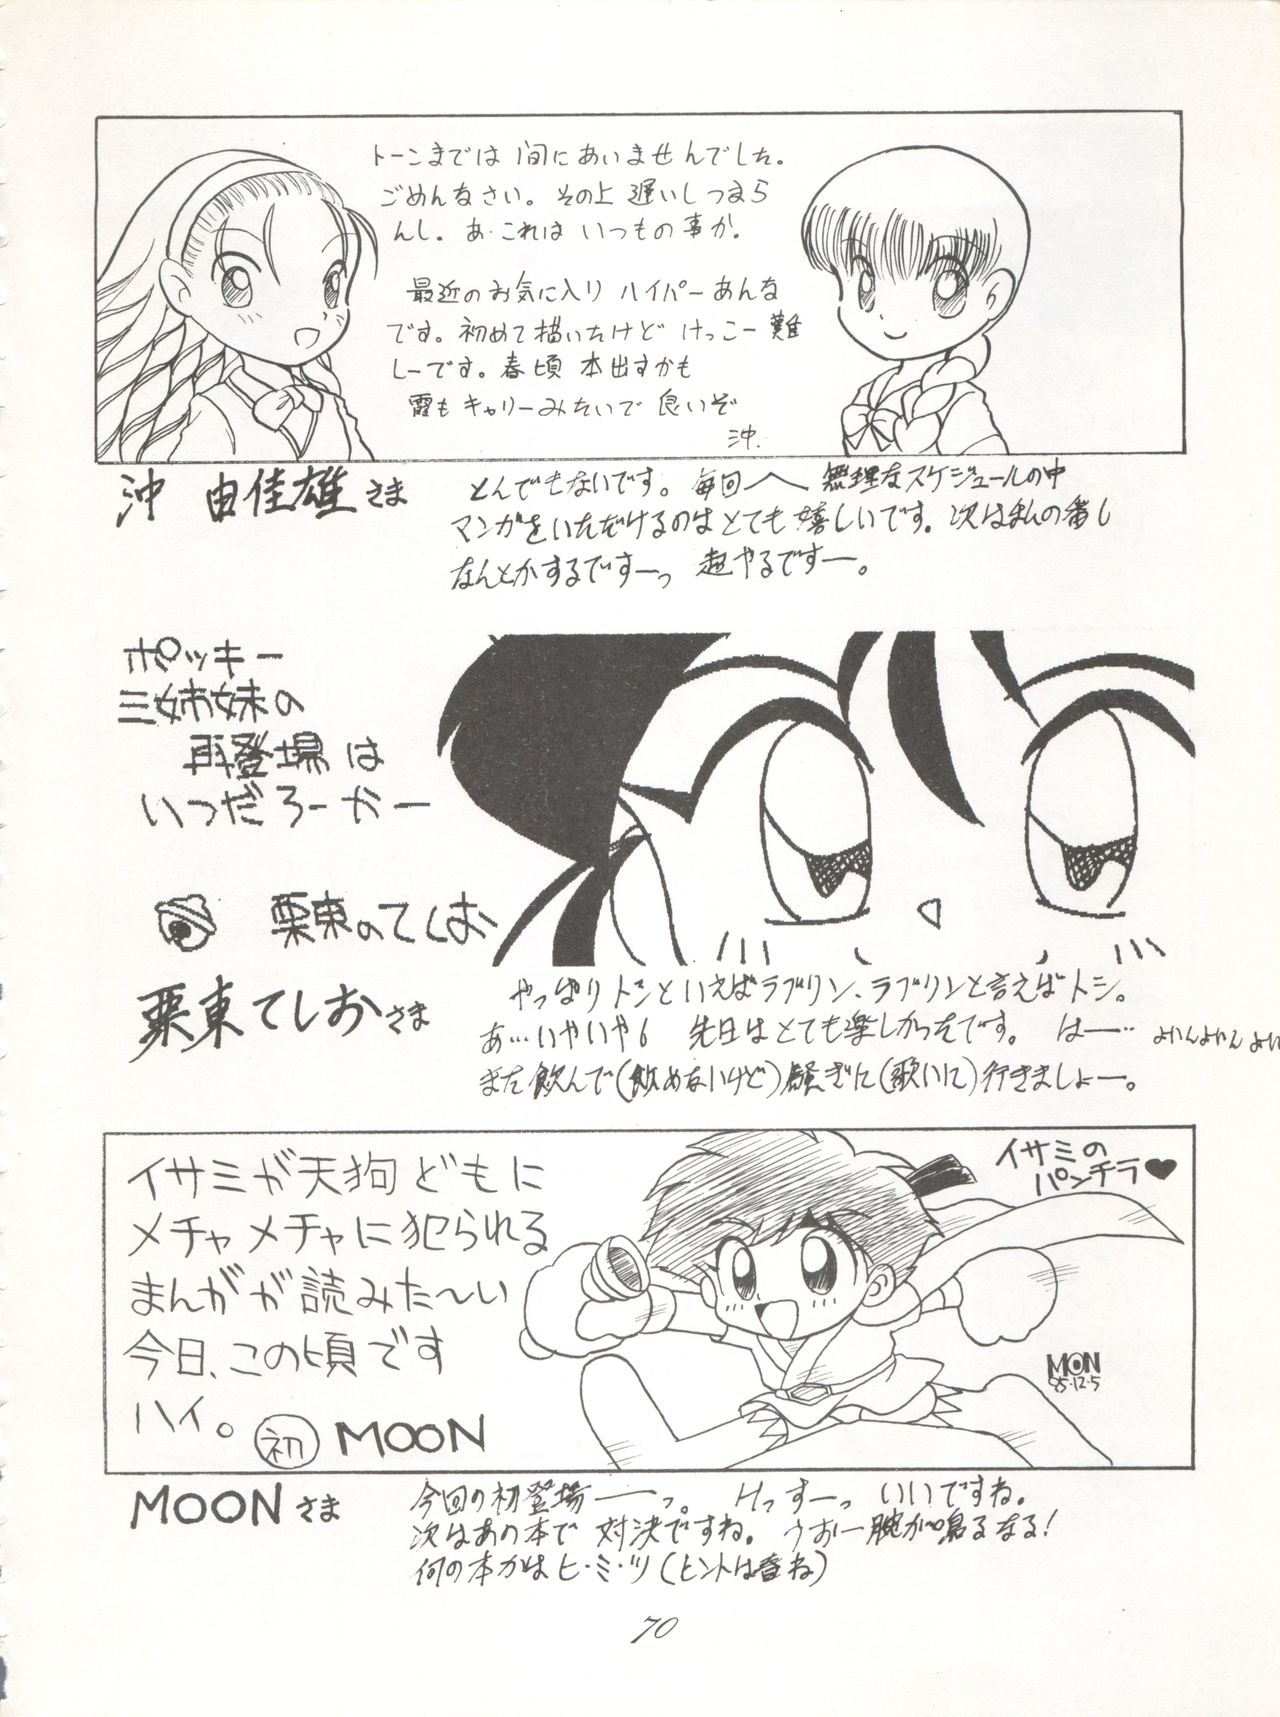 トーンまでは間にあいませんでした。
ごめんなさい。その上遅いしつまら
んし。あ・これはいつもの事か。
最近のお気に入りハイパーあんな
です。初めて描いたけどけっこー難
しーです。春頃本出すかも
霞もキャリーみたいで良いぞ
沖.
沖 由佳雄さま
とんでもないです。毎回 無理なスケジュールの中
マンガをいただけるのはとても嬉しいです。次はまんの番し
なんとかするですーっ 超やるですー。
ポッキー
三姉妹の
再登場は
いつだろーかー
栗東のてしお
栗東てしおさま
やっぱりトシといえばラブリン、ラブリンと言えばトシ。
あ…いやいや 先日はとても楽しかったです。 はー… よいんよいんよい
また飲んで(飲めないけど)騒ぎに(歌いに)行きましょー。
イサミのパンチラ♥
イサミが天狗どもに
メチャメチャに犯られる
まんがが読みた～い
今日、この頃です
ハイ。 初 MOON
MOON
95・12・5
MOONさま
今回の初登場ーっ。 Hっすーっ いいですね。
次はあの本で対決ですね。うおー腕が鳴るなる！
何の本かはヒ・ミ・ツ(ヒントは春ね)
70